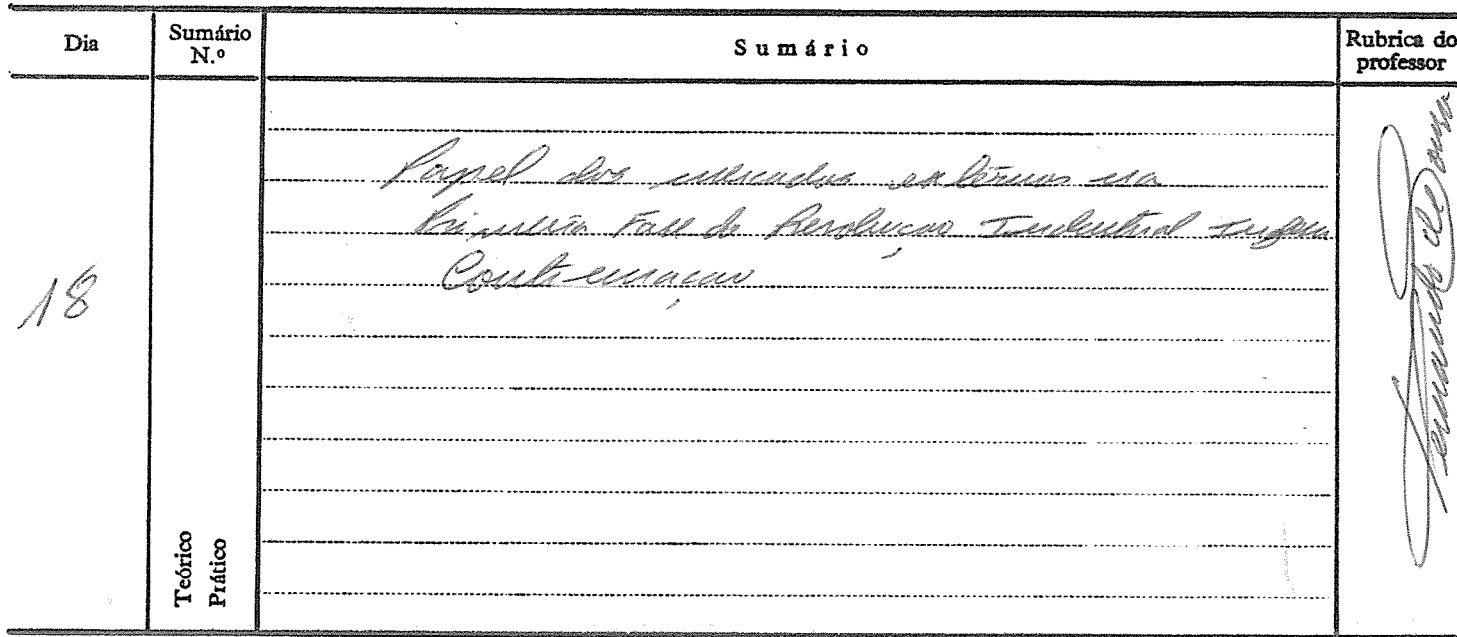 Dia
Sumário N.º
Sumário
Rubrica do professor
18
Teórico
Prático
Papel dos mercados externos na
Primeira Fase da Revolução Industrial Inglesa
Continuação
Fernando de Sousa